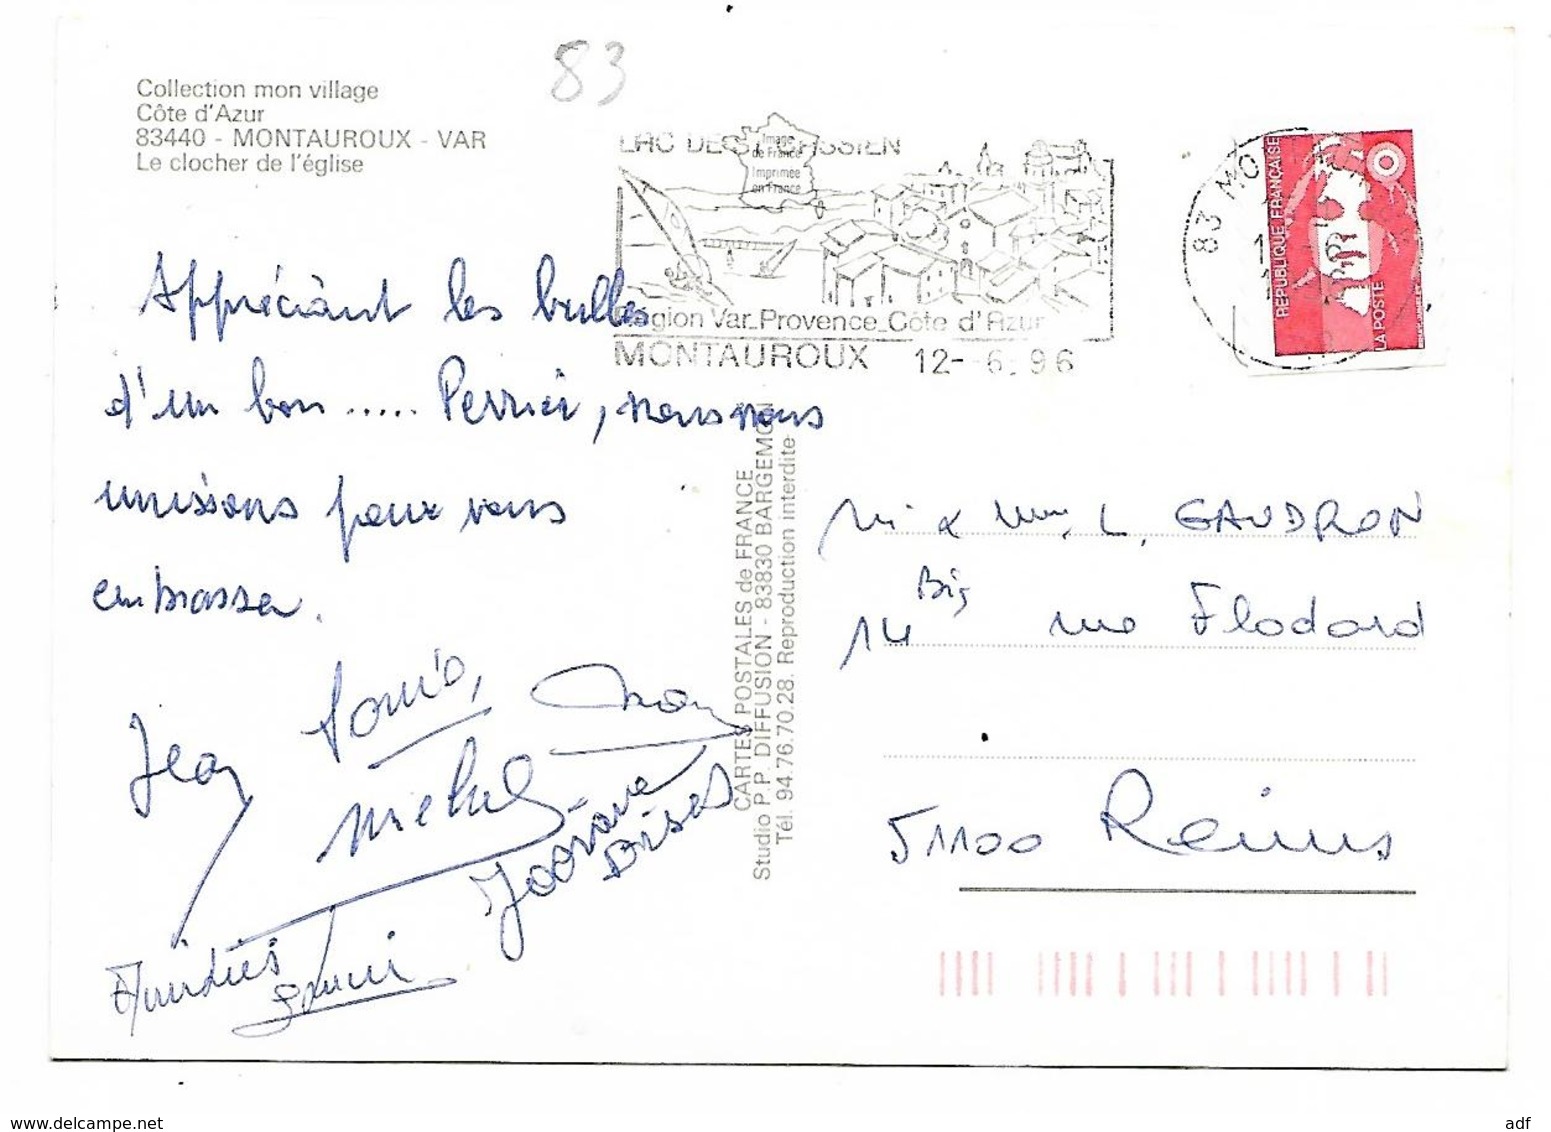 83
Collection mon village
Côte d'Azur
83440 - MONTAUROUX - VAR
Le clocher de l'église
LAC DE ST CASSIEN
Image
de France
Imprimée
en France
Région Var_Provence_Côte d'Azur
MONTAUROUX 12- 6. 96
83 MO
REPUBLIQUE FRANÇAISE
LA POSTE
Appréciant les bulles
d'un bon ..... Perrier, nous nous
unissons pour vous
embrasser.
Jean Louis,
Michel
Amitiés
CARTES POSTALES de FRANCE
Studio P.P. DIFFUSION - 83830 BARGEMON
Tél. 94.76.70.28. Reproduction interdite
M & Mme L. GAUDRON
14 Bis rue Flodoard
51100 Reims
www.delcampe.net
adf